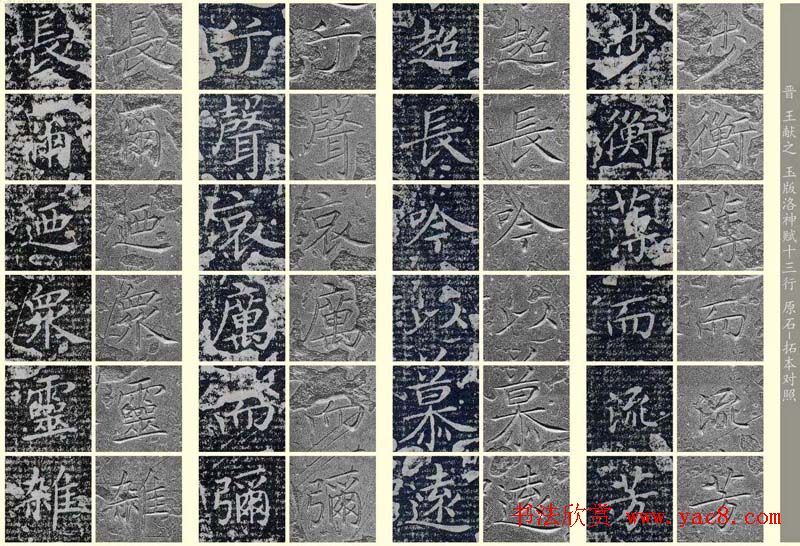 晋 王献之 玉版洛神赋十三行 原石—拓本对照
步衡薄而流芳
步衡薄而流芳
超長吟以慕遠
超長吟以慕遠
兮聲哀厲而彌
兮聲哀厲而彌
長爾迺眾靈雜
長爾迺眾靈雜
书法欣赏 www.yac8.com